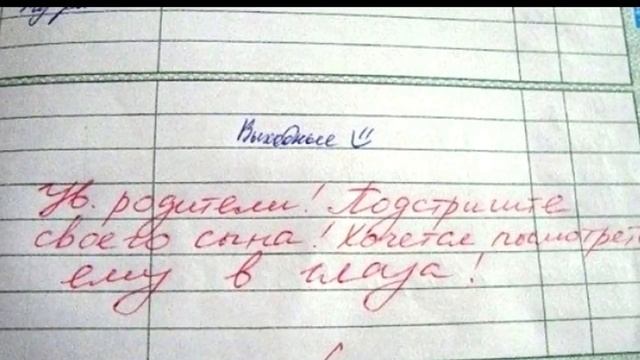 Выходные
Ув. родители! Подстригите
своего сына! Хочется посмотреть
ему в глаза!